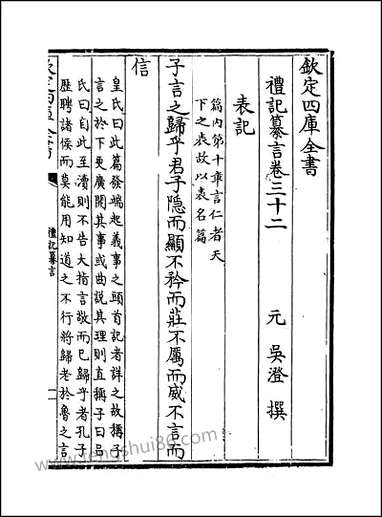 欽定四庫全書
禮記纂言卷三十二
元 吳澄 撰
表記
篇內第十章言仁者天
下之表故以表名篇
子言之歸乎君子隱而顯不矜而莊不厲而威不言而
信
皇氏曰此篇發端起義事之頭首記者詳之故稱子
言之於下更廣開其事或曲說其理則直稱子曰呂
氏曰自此至瀆則不告大指言敬而已歸乎者孔子
歷聘諸侯而莫能用知道之不行將歸老於魯之言
禮記纂言
一
www.fengshui86.com